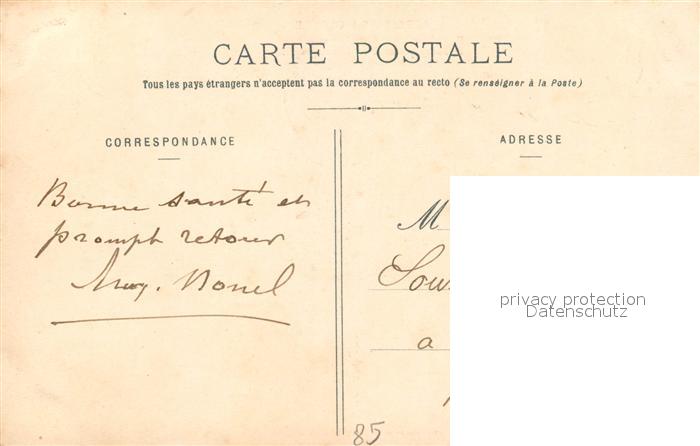 CARTE POSTALE
Tous les pays étrangers n'acceptent pas la correspondance au recto (Se renseigner à la Poste)
CORRESPONDANCE
Bonne santé et
prompt retour
ADRESSE
M
Sous
a
85
privacy protection
Datenschutz